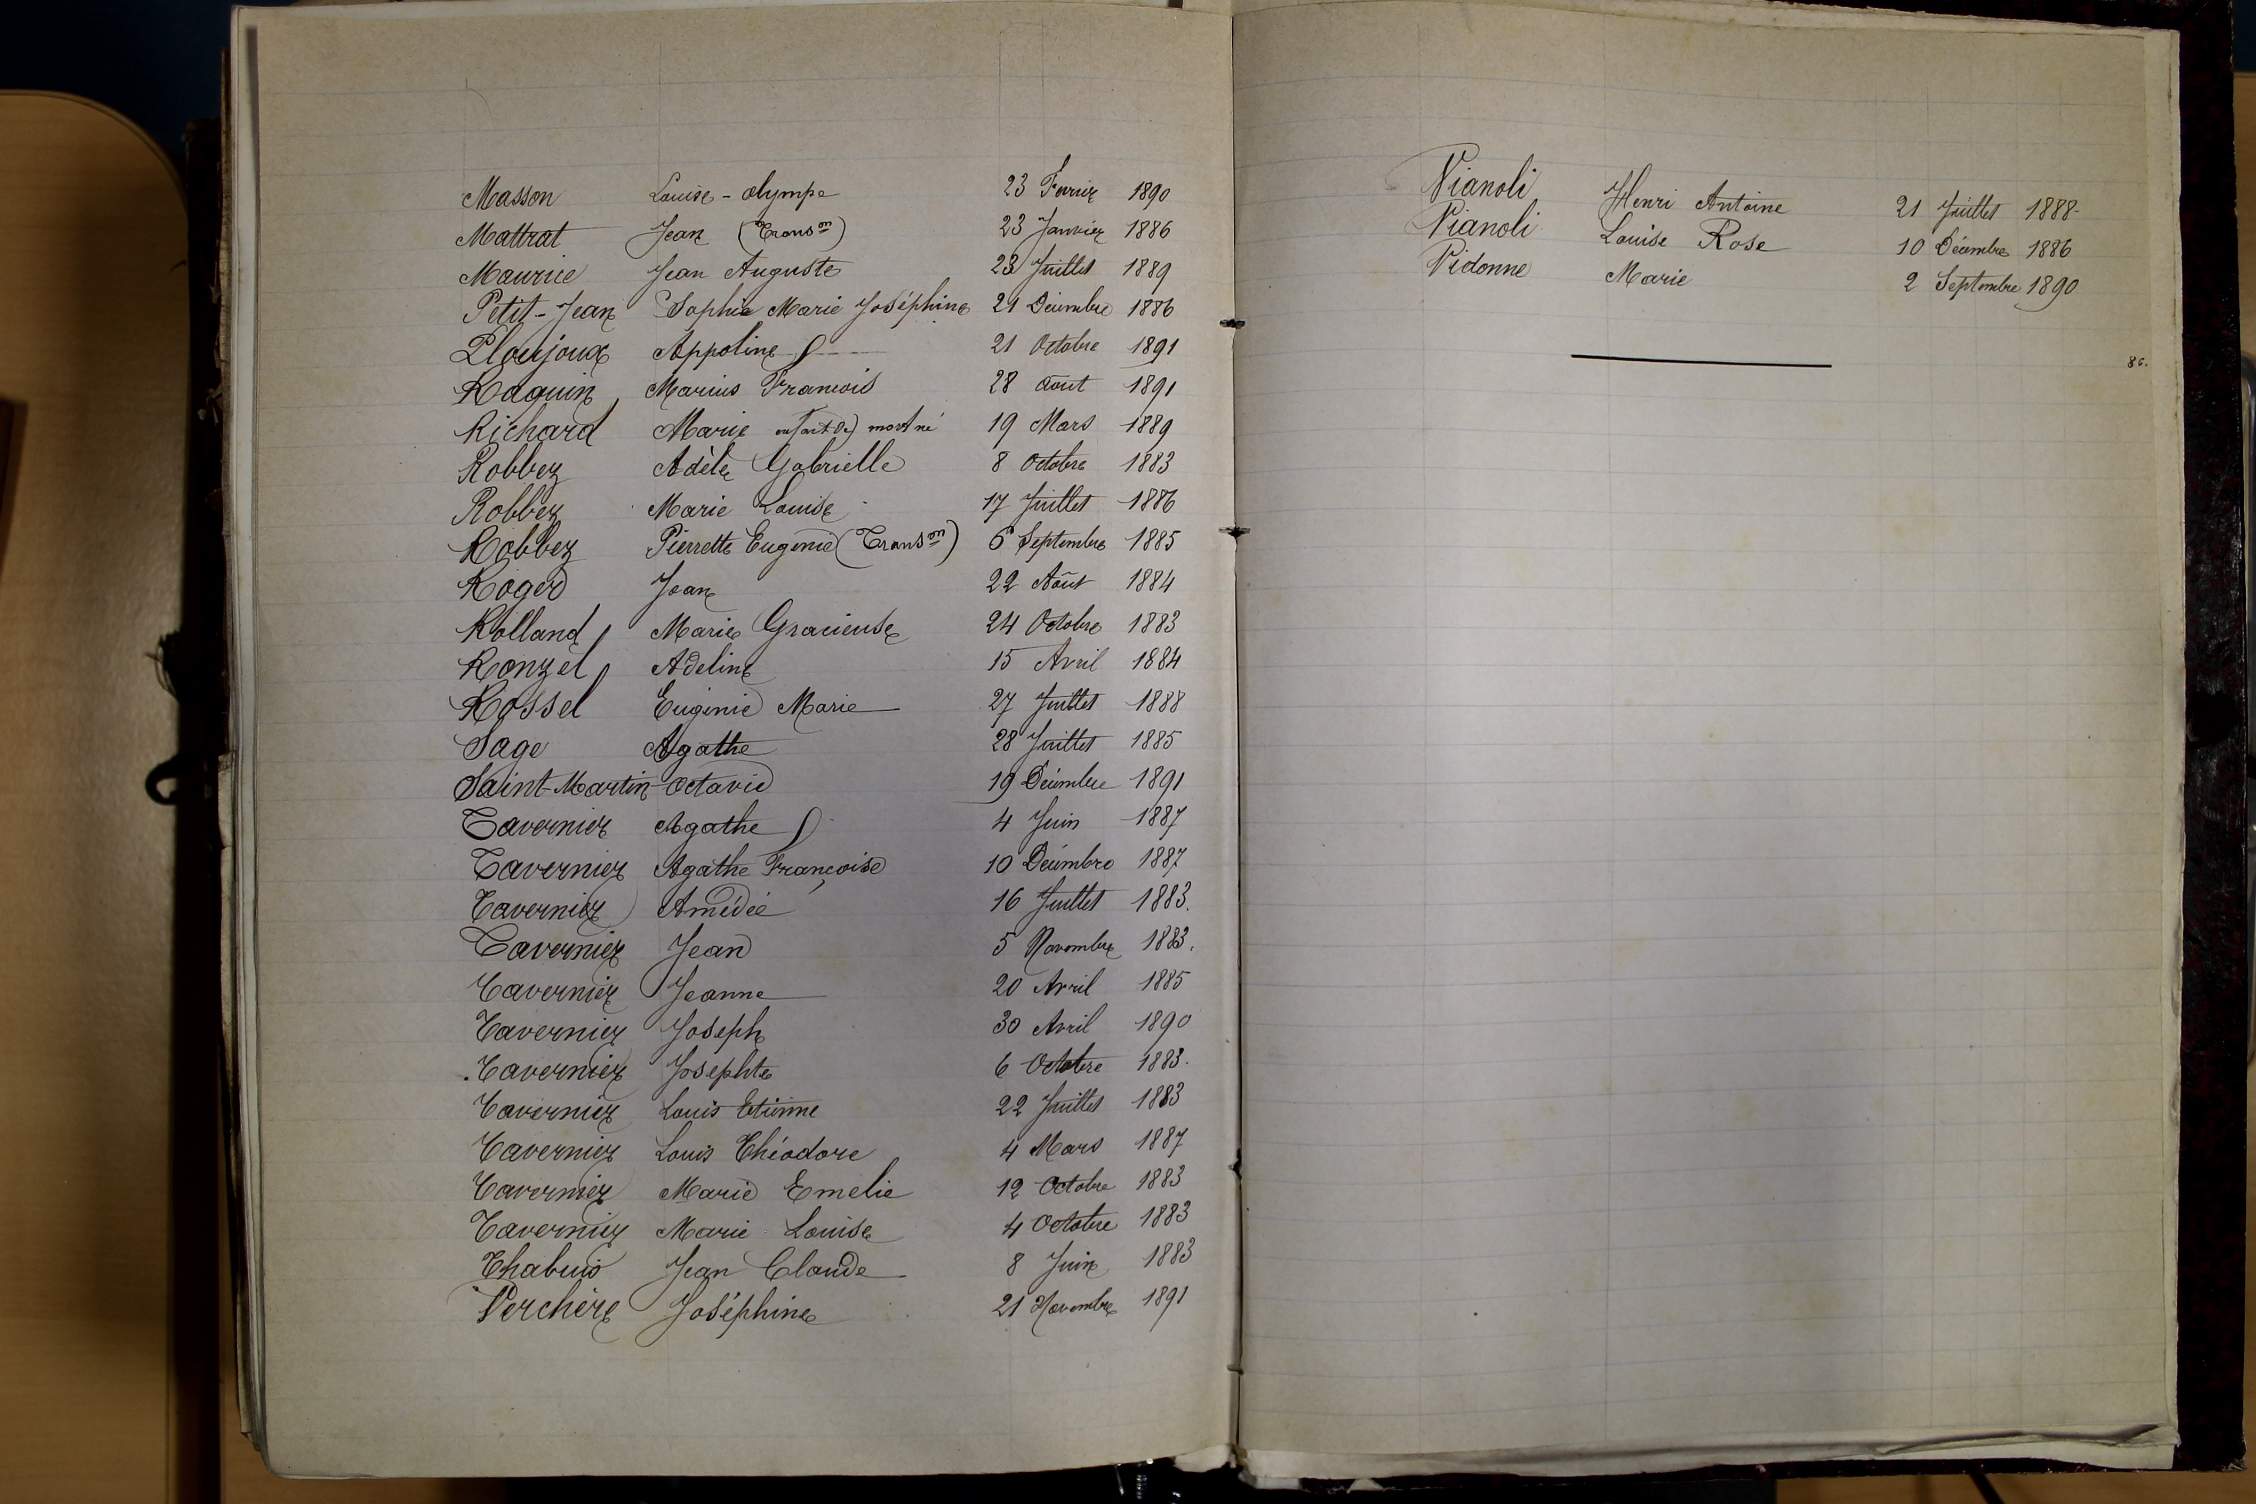 Masson Louise - Olympe 23 Février 1890
Mattrat Jean (Transon) 23 Janvier 1886
Maurice Jean Auguste 23 Juillet 1889
Petit-Jean Sophie Marie Joséphine 21 Décembre 1886
Ploujoux Appoline 21 Octobre 1891
Raquin Marius Francois 28 Aout 1891
Richard Marie enfant de) mort né 19 Mars 1889
Robbez Adèle Gabrielle 8 Octobre 1883
Robbez Marie Louise 17 Juillet 1886
Robbez Pierrette Eugénie (Transon) 6 Septembre 1885
Roger Jean 22 Août 1884
Rolland Marie Gracieuse 24 Octobre 1883
Ronzel Adeline 15 Avril 1884
Rossel Eugénie Marie 27 Juillet 1888
Sage Agathe 28 Juillet 1885
Saint-Martin Octavie 19 Décembre 1891
Tavernier Agathe 4 Juin 1887
Tavernier Agathe Françoise 10 Décembre 1887
Tavernier Amédée 16 Juillet 1883.
Tavernier Jean 5 Novembre 1883.
Tavernier Jeanne 20 Avril 1885
Tavernier Joseph 30 Avril 1890
Tavernier Josephte 6 Octobre 1883.
Tavernier Louis Etienne 22 Juillet 1883
Tavernier Louis Théodore 4 Mars 1887
Tavernier Marie Emelie 12 Octobre 1883
Tavernier Marie Louise 4 Octobre 1883
Thabuis Jean Claude 8 Juin 1883
Verchère Joséphine 21 Novembre 1891
Vianoli Henri Antoine 21 Juillet 1888-
Vianoli Louise Rose 10 Décembre 1886
Vidonne Marie 2 Septembre 1890
86.